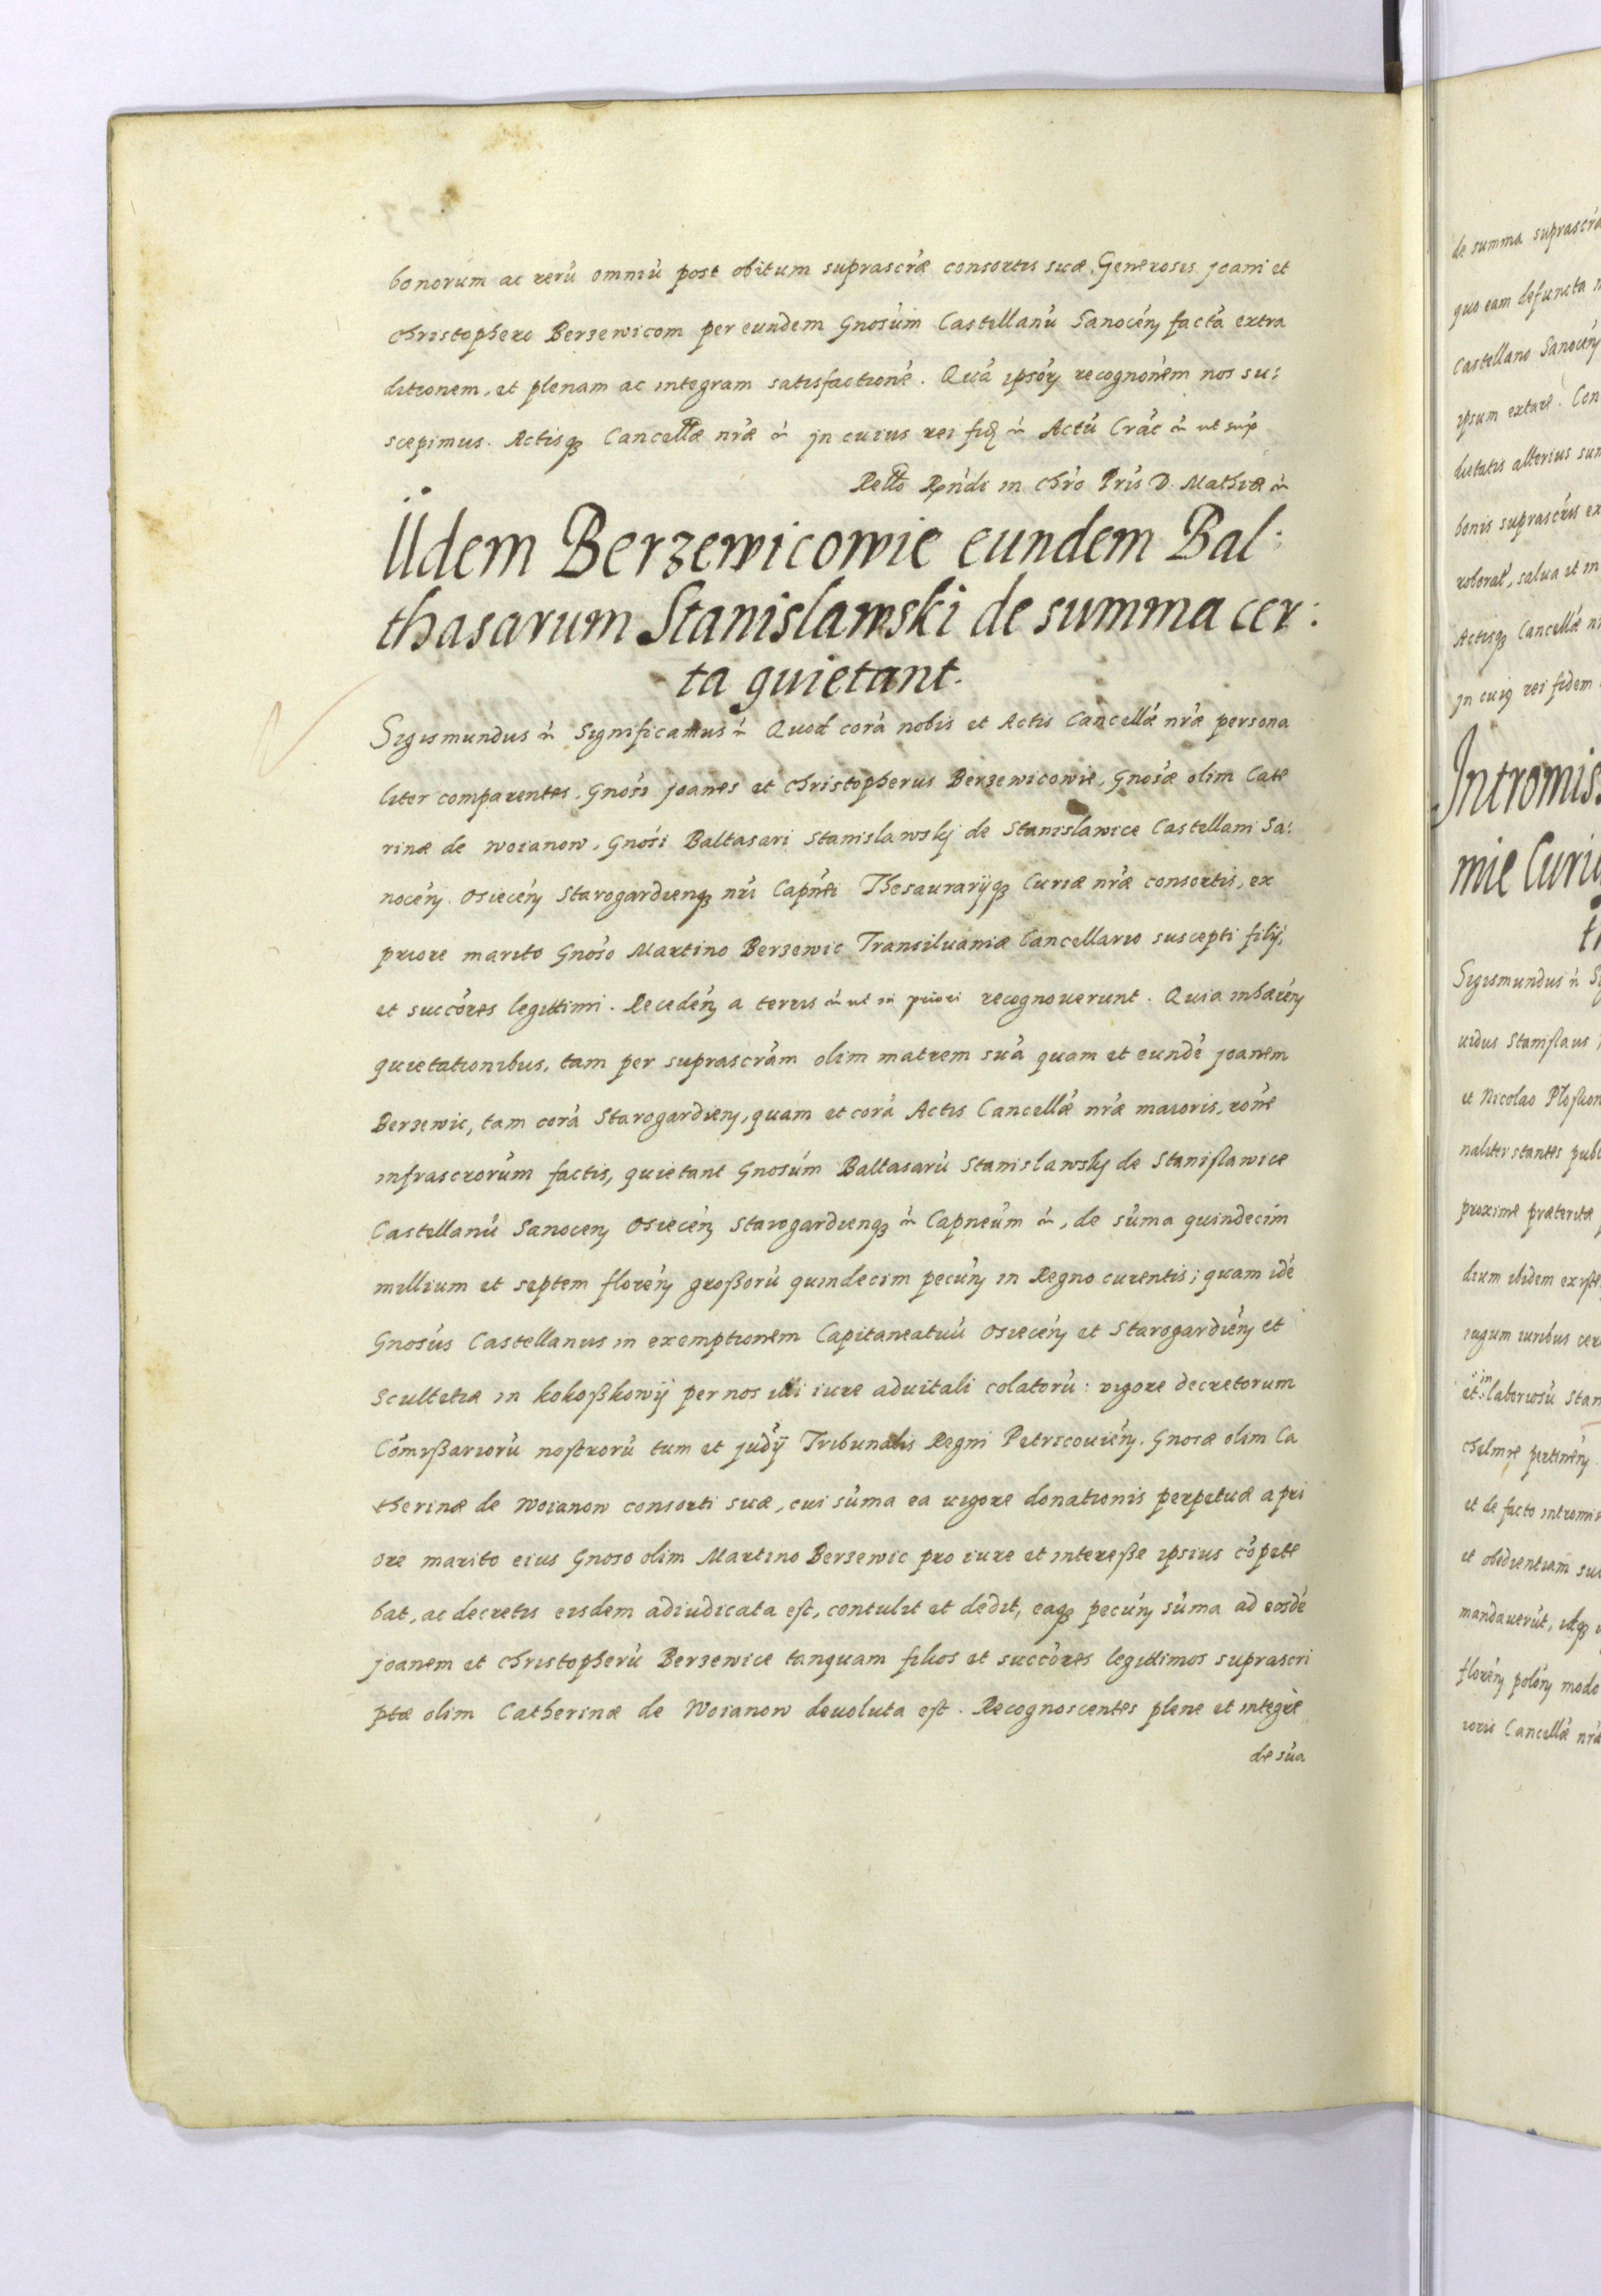 bonorum ac rerū omniū post obitum suprascrāe consortis suæ, Generosis Joani et
Christophero Berzewicom per eundem Gnosūm Castellanū Sanocēn̄ factā extra
ditionem, et plenam ac integram satisfactionē. Quā ipsōr recognonēm nos su:
scepimus. Actisq3 Cancellæ nrāe etc̄ jn cuius rei fid etc̄ Actū Crāc etc̄ ut sup
Rello Rn̄di in Chrō Pr̄is D. Mathiæ etc̄
Iidem Berzewicowie eundem Bal:
thasarum Stanislawski de summa cer:
ta quietant.
Sigismundus etc̄ Significamus etc̄ Quod corā nobis et Actis Cancellæ nrāe persona
liter comparentes. Gnosī Joanes et Christopherus Berzewicowie, Gnosāe olim Cate
rinæ de Woianow, Gnosī Baltasari Stanislawskj de Stanislawice Castellani Sa:
nocēn̄ Osiecēn̄ Starogardienq3 nrī Capnēi Thesaurarijq3 Curiæ nrāe consortis, ex
priore marito Gnosō Martino Berzewic Transiluaniæ Cancellario suscepti filij,
et succōres legittimi. Recedēn̄ a terris etc̄ ut in priori recognouerunt. Quia inhærēn̄
quietationibus, tam per suprascrām olim matrem suā quam et eundē Joanem
Berzewic, tam corā Starogardien̄, quam et corā Actis Cancellæ nrāe maioris, ronē
infrascrorūm factis, quietant Gnosūm Baltasarū Stanislawskj de Stanislawice
Castellanū Sanocen̄ Osiecēn̄ Starogardienq3 etc̄ Capneūm etc̄, de sūma quindecim
millium et septem florēn̄ großorū quindecim pecūn̄ in Regno curentis; quam idē
Gnosūs Castellanus in exemptionem Capitaneatuū Osiecēn̄ et Starogardiēn̄ et
Scultetiæ in Kokoßkowij per nos illi iure aduitali colatorū: vigore decretorum
Cōmißariorū nostrorū tum et judij Tribunalis Regni Petricouiēn̄. Gnosæ olim Ca
therinæ de Woianow consorti suæ, cui sūma ea vigore donationis perpetuæ a pri
ore marito eius Gnoso olim Martino Berzewic pro iure et intereße ipsius cōpete
bat, ac decretis eisdem adiudicata est, contulit et dedit, eaq3 pecūn̄ sūma ad eosdē
Joanem et Christopherū Berzewice tanquam filios et succōres legittimos suprascri
ptæ olim Catherinæ de Woianow deuoluta est. Recognoscentes plene et integre
de sūa
de summa suprascrā
quo eam defuncta
Castellano Sanocēn̄
ipsum extare. Con
dietatis alterius sum
bonis suprascrīs ex
roborat, salua et in
Actisq3 Cancellæ nr
jn cuiq rei fidem
Intromis
mie Curi
Sigismundus etc̄ Si
uidus Stanislaus
et Nicolao Ploskon
naliter stantes publ
proxime præteritæ
dium ibidem existe
iugum iuribus cer
et in laboriosū Stan
Chelmie pertinēn̄
et de facto intromis
et obedientiam su
mandauerūt, idq3
florēn̄ polōn̄ modo
ioris Cancellæ nrā